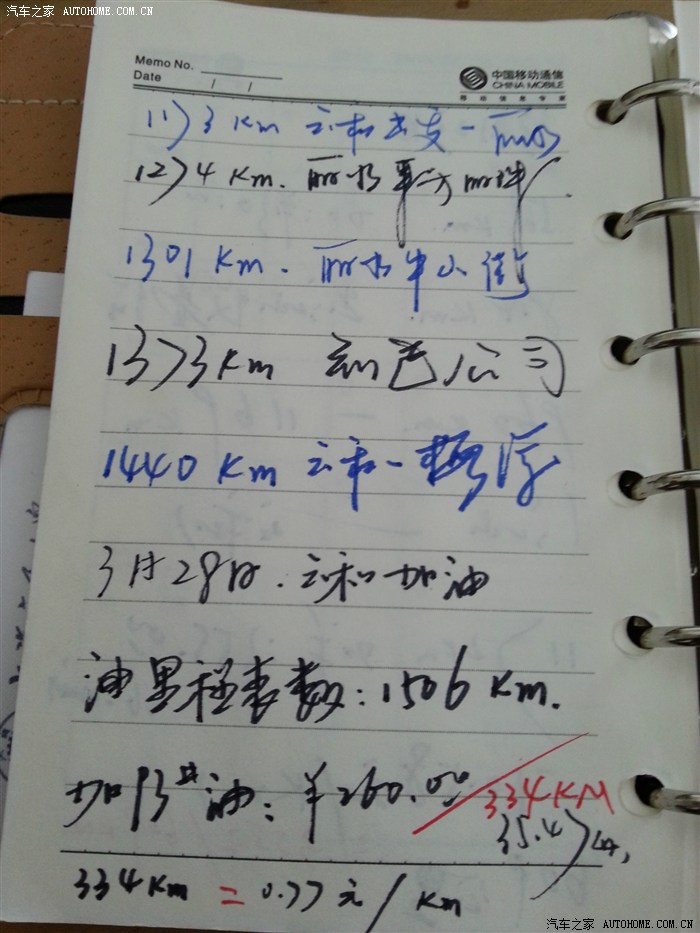 汽车之家 AUTOHOME.COM.CN
Memo No.
Date / /
中国移动通信
CHINA MOBILE
移动信息专家
1173 Km 云和
1274 Km. 丽水
1301 Km. 丽水 小
1373 Km 公司
1440 Km 云和一
3月28日.云和加油
油里程表数:1506 Km.
加93#油:¥260.00 334KM
35.47
334Km = 0.77元/Km
汽车之家 AUTOHOME.COM.CN